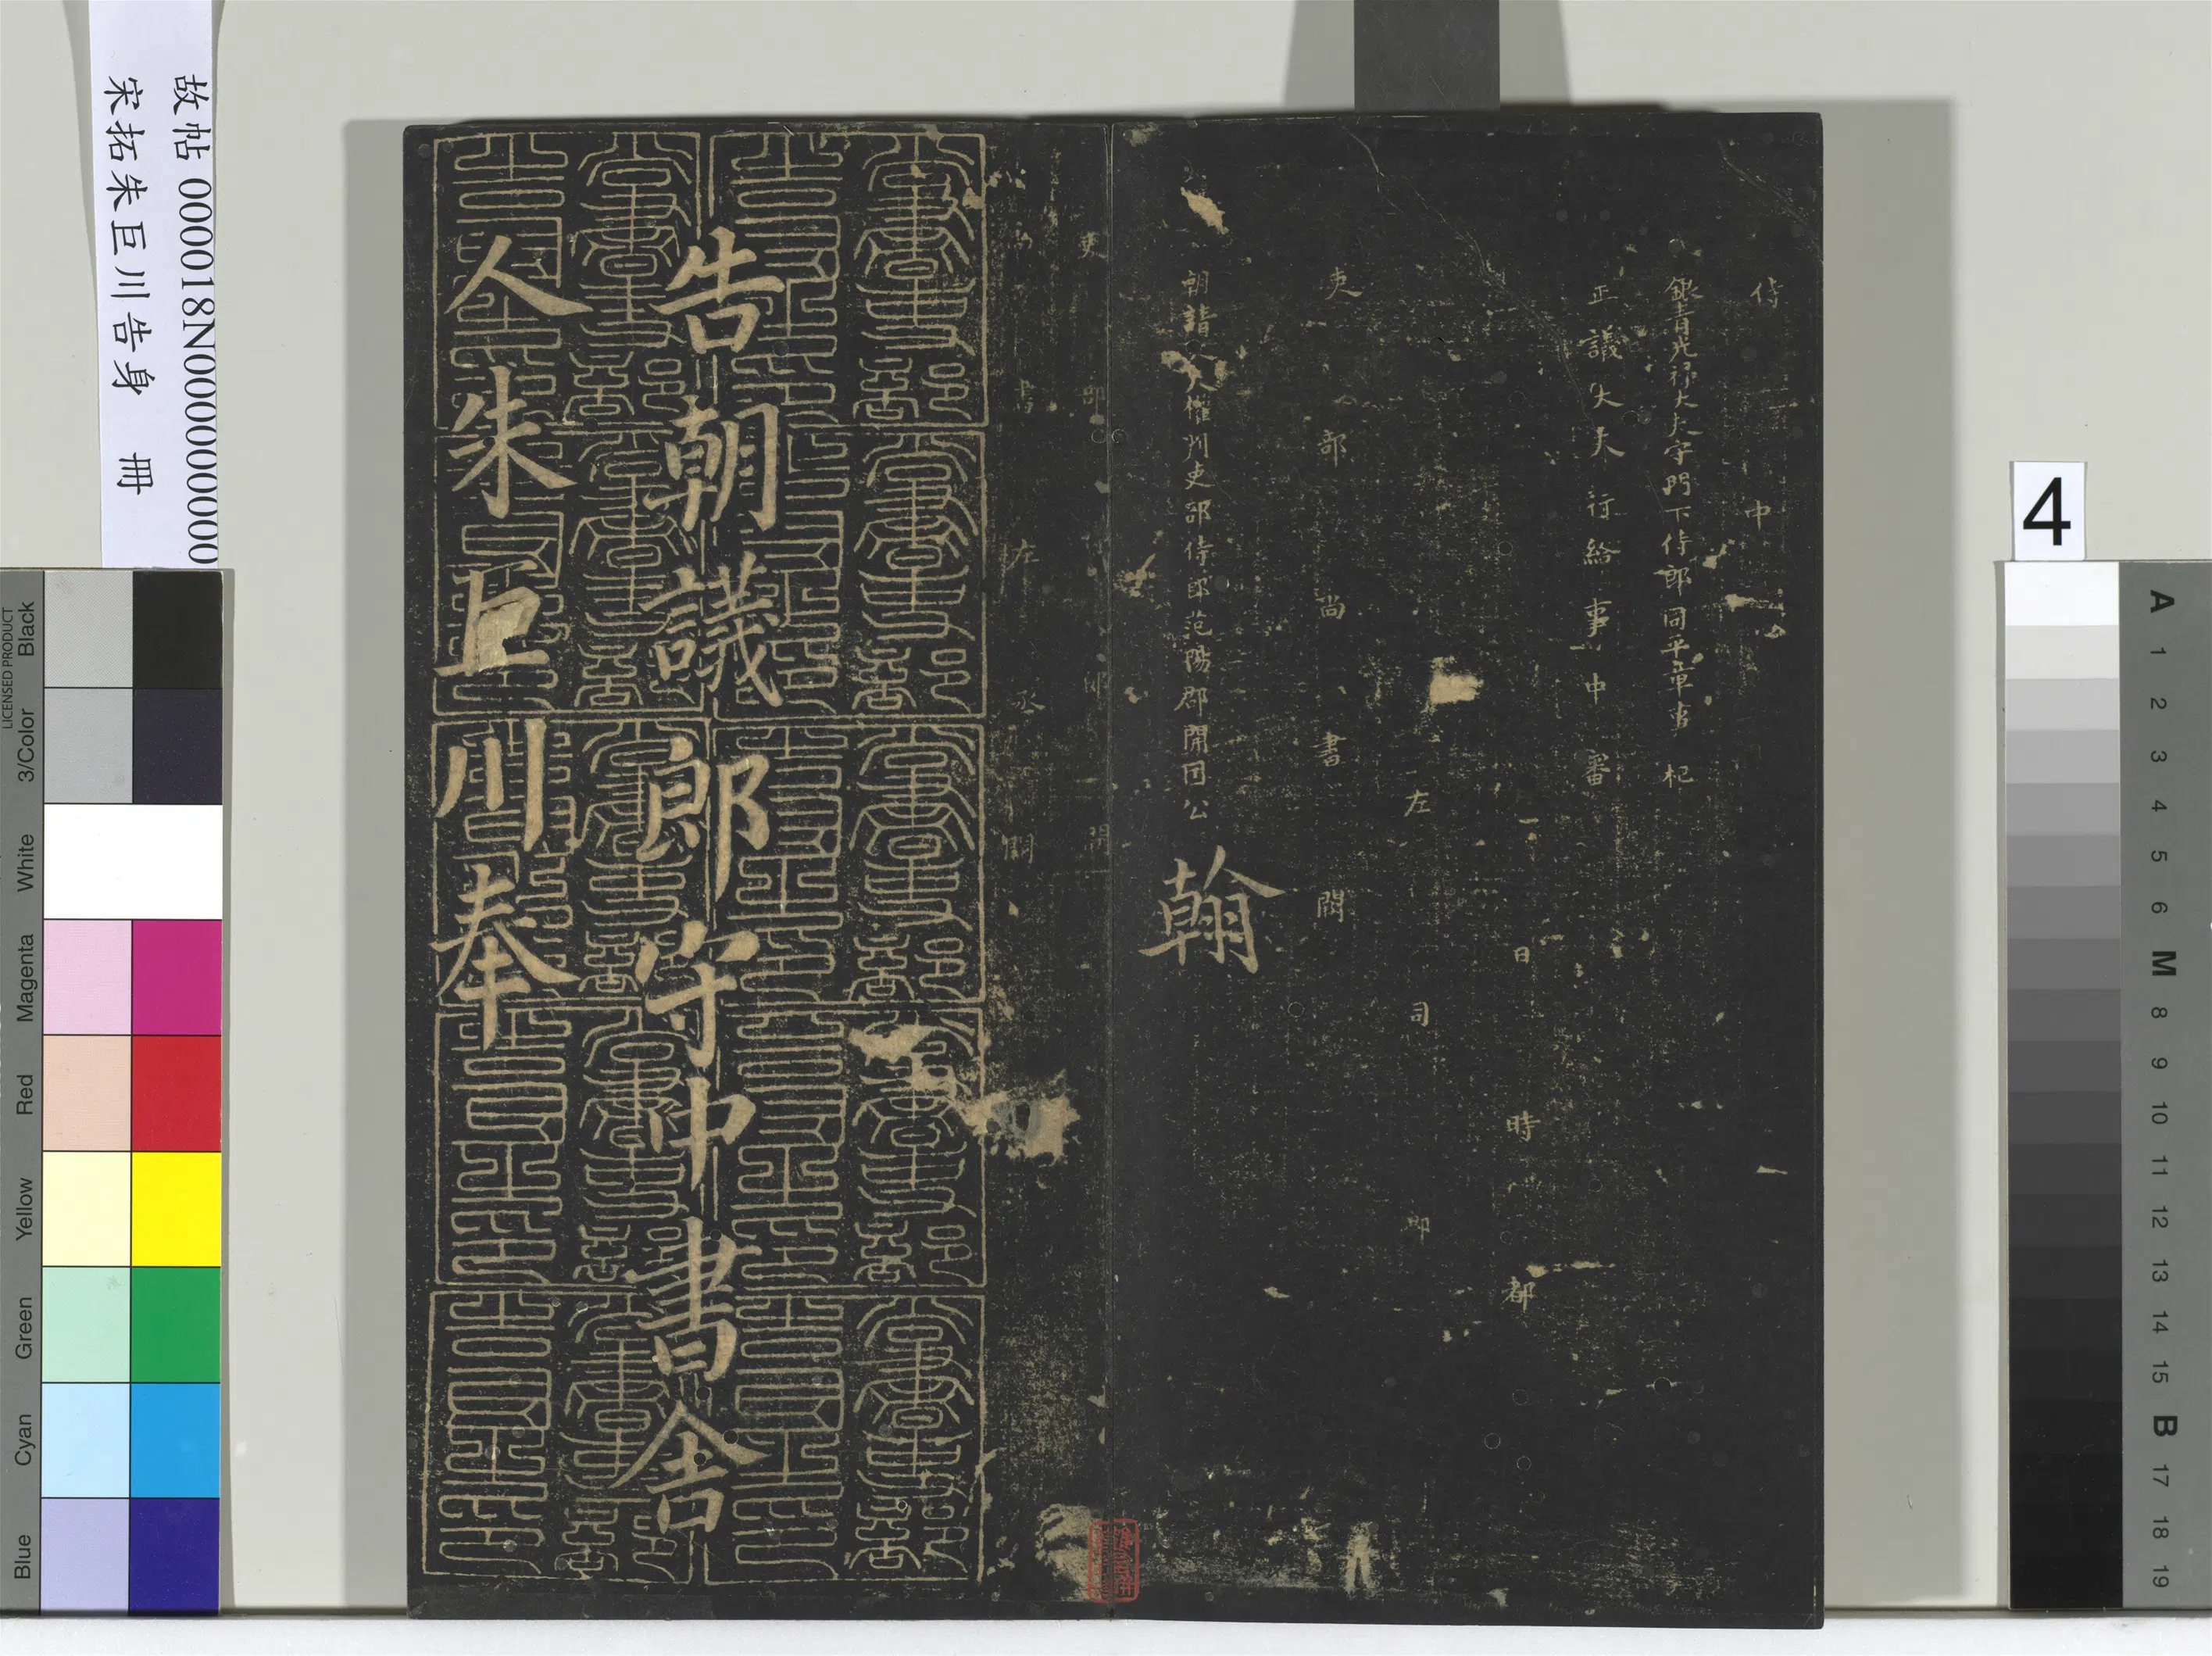 侍中
銀青光祿大夫守門下侍郎同平章事 杞
正議大夫行給事中審
日時都
左司郎
吏部尚書闕
朝請大夫權判吏部侍郎范陽郡開國公翰
吏部侍郎闕
尚書左丞闕
告朝議郎守中書舍
人朱巨川奉
故帖 000018N000000000
宋拓朱巨川告身 冊
4
LICENSED PRODUCT
Black
3/Color
White
Magenta
Red
Yellow
Green
Cyan
Blue
A
1
2
3
4
5
6
M
8
9
10
11
12
13
14
15
B
17
18
19